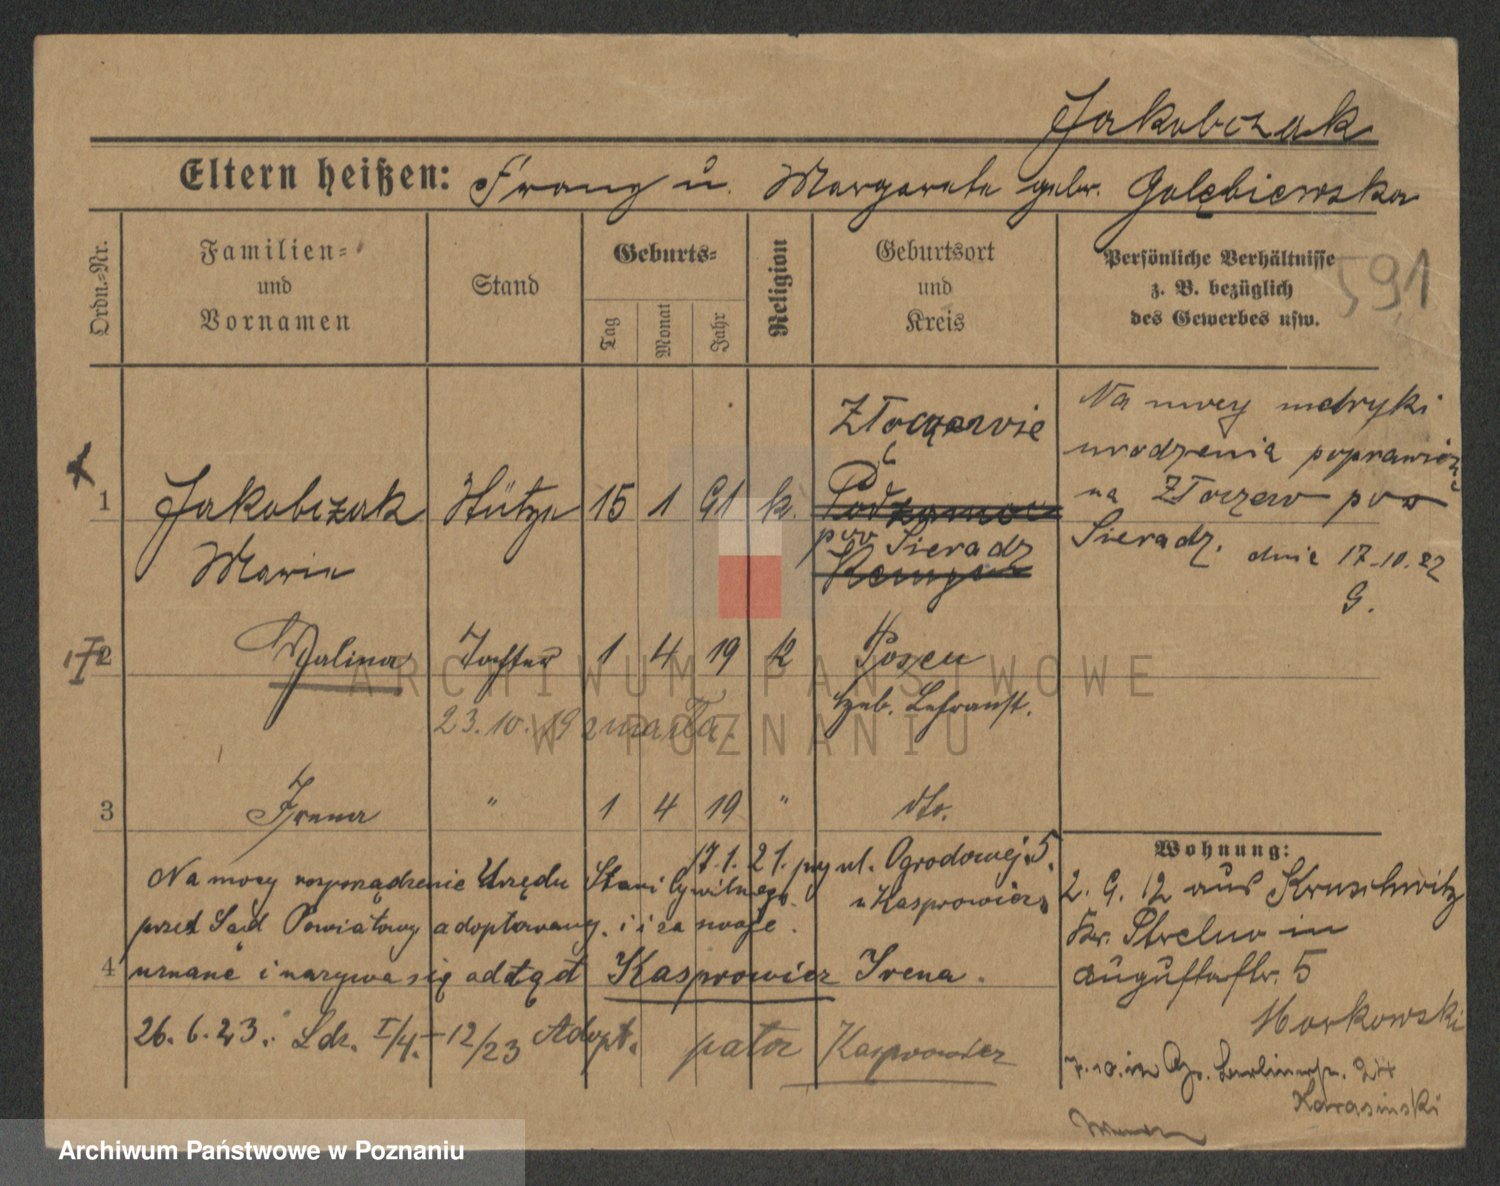 Jakobczak
Eltern heißen: Franz u. Margareta geb. Gołębiewska
Ordn.-Nr.
Familien- und Vornamen
Stand
Geburts-
Tag
Monat
Jahr
Religion
Geburtsort und Kreis
Persönliche Verhältnisse
z. B. bezüglich
des Gewerbes usw.
591
Złoczewie
Na mocy metryki
urodzenia
na Złoczew pow
Sieradz. dnia 17.10.22
G.
1 Jakobczak Stütze 15 1 91 k.
Maria
pow Sieradz
2 Halina Tochter 1 4 19 k Posen
23.10.19 zmarła. Heb. Lehranst.
3 Irena " 1 4 19 " dto.
17.1.21. przy ul. Ogrodowej 5.
u Kasprowicz
Na mocy rozporządzenie Urzędu Stanu Cywilnego
przed Sąd Powiatowy adoptowany, i za swoje.
4 uznane i nazywa się odtąd Kasprowicz Irena.
26.6.23. I/4.-12/23 Adopt. patrz Kasprowicz
Wohnung:
2. 9. 12 aus Kruschwitz
Kr. Strelno in
Augustastr. 5
Markowski
24
Karasinski
ARCHIWUM PAŃSTWOWE
W POZNANIU
Archiwum Państwowe w Poznaniu